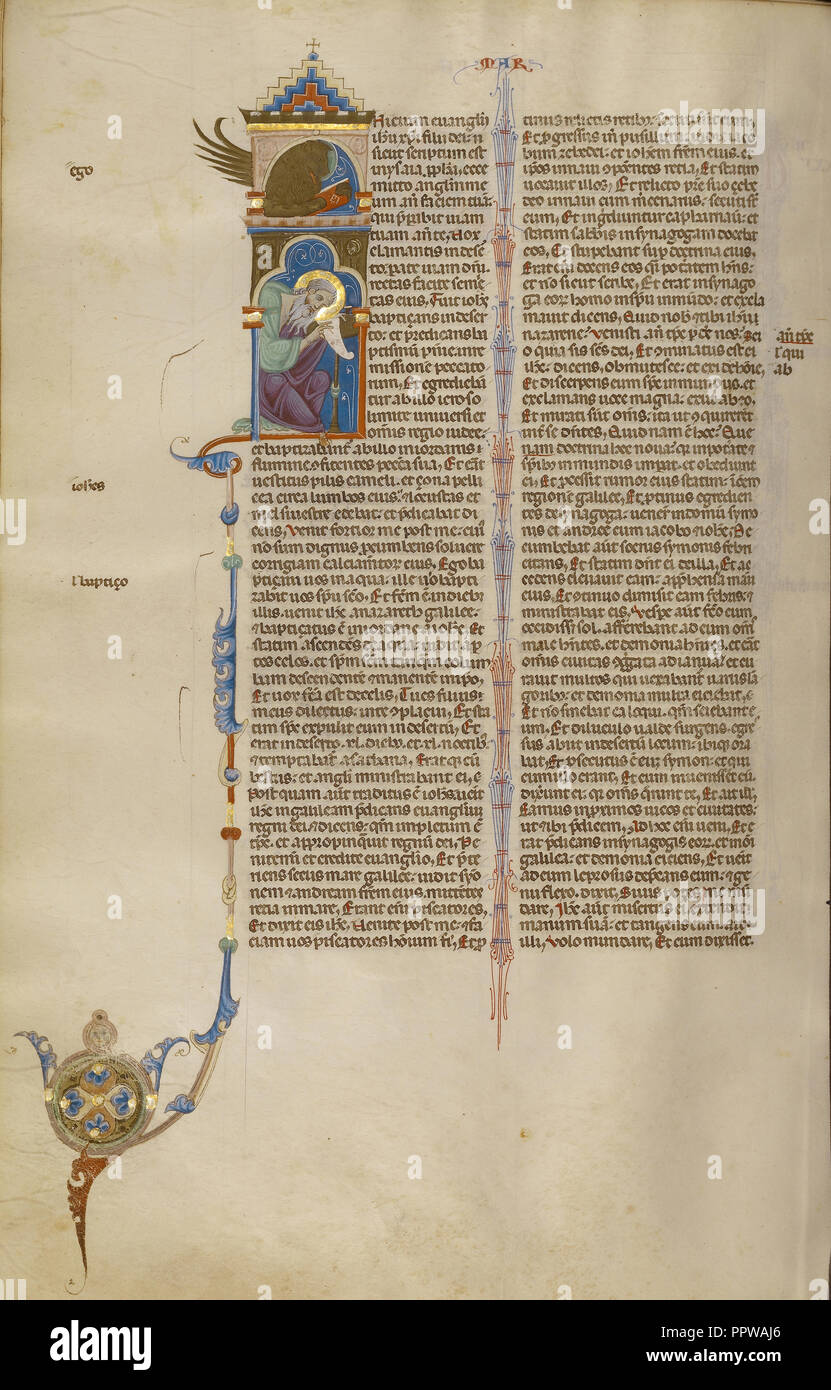 MAR
Nicium euangelii
ihu xpi filii dei: n
sicut scriptum est
in ysaia ppha, ecce
mitto anglm me
um an faciem tua
qui pparabit uiam
tuam an te, Vox
clamantis in dese
to: parate uiam dni,
rectas facite semi
tas eius, Fuit iohes
baptiçans in deser
to: et predicans ba
ptismum penitentie
in remissionem peccato
rum, Et egrediebat
tur ad illum ieroso
limite uniuersi et
omis regio iudee:
et baptiçabant ab illo in iordanis
flumine confitentes peccata sua, Et erat
uestitus pilis cameli. et çona pelli
cea circa lumbos eius: et locustas et
mel siluestre edebat: et pdicabat di
cens, Venit fortior me post me: cui
no sum dignus pcumbens soluere
corrigiam calciamtor eius, Ego ba
ptiçaui uos in aqua: ille uo bapti
zabit uos spu sco, Et fem e in dieb
illis: uenit ihc a nazareth galilee:
et baptiçatus e in iordane a iohe, Et
statim ascendens
tos celos. et spm
bam descendente et manente in ipo,
Et uox fca est de celis, Tu es filius
meus dilectus: in te complacui, Et sta
tim spc expulit eum in desertu, Et
erat in deserto .xl. dieb. et .xl. noctib.
et temptabat a sathana, Erat q cu
bestiis: et angli ministrabant ei,
Post quam aut traditus e iohes: ueit
ihc in galileam pdicans euangliu
regni dei, et dicens: qm impletum e
tpc. et appropinquit regnu dei, Pe
nitemi et credite euanglio, Et pte
riens secus mare galilee: uidit syo
nem et andream frem eius. mittetes
retia in mare, Erant eni piscatores,
Et dixit eis ihc, Venite post me: et fa
ciam uos piscatores hoium fi, Et p
tinus relictis retibz: secuti sunt eum,
Et pgressus in pusillum: uidit iaco
bum zebedei: et iohem frem eius. et
ipos in naui componentes retia, Et statim
uocauit illos, Et relicto pre suo çebe
deo in naui cum mcenarius: secuti st
eum, Et ingrediuntur capharnau: et
statim sabbis in synagogam docebat
eos, Et stupebant sup doctrina eius,
Erat eni docens eos qi potatem hns:
et no sicut scribe, Et erat in synago
ga eor homo in spu inmudo: et excla
mauit dicens, Quid nob et tibi ihu
nazarene: Venisti an tpc pde nos: Sci
o quia sis scs dei, Et cominatus est ei
ihc: dicens, Obmutesce: et exi de hoie,
Et discerpens eum spc inmundus. et
exclamans uoce magna: exiit ab eo.
Et mirati sut oms: ita ut conquireret
int se dntes, Quid nam e hec: Que
nam doctrina hec noua: q in potate et
spib inmundis impat. et obediunt
ei, Et pcessit rumor eius statim: i oem
regione galilee, Et ptinus egredien
tes de synagoga: uenert in domu symo
nis et andree cum iacobo et iohe, De
cumbebat aut socrus symonis febri
citans, Et statim dnt ei de illa, Et ac
cedens eleuauit eam: apphensa manu
eius, Et continuo dimisit eam febris: et
ministrabat eis, Vespe aut fco cum
occidisset sol. afferebant ad eum oms
male hntes. et demonia hntes. et erat
omis ciuitas conggata ad ianua: et cu
rauit multos qui uexabant uariis la
goribz: et demonia multa eiciebat,
Et no sinebat ea loqui. qm sciebant e
um, Et diluculo ualde surgens. egre
sus abiit in desertu locum: ibiq ora
bat, Et psecutus e eu symon: et qui
cum illo erant, Et cum inuenisset eu:
dixerunt ei: quia oms querunt te, Et ait illi,
Eamus in proximos uicos et ciuitates:
ut et ibi pdicem, Ad hoc eni ueni, Et e
rat pdicans in synagogis eorr. et in oi
galilea: et demonia eiciens, Et ueit
ad eum leprosus depcans eum: et ge
nu flexo. dixit, Si uis: potes me mu
dare, Ihc aut misertus
manum sua: et tangens eum: ait
illi, Volo mundare, Et cum dixisset:
ego
iohes
l baptiço
an tpc
l qui
ab
alamy
alamy
alamy
Image ID: PPWAJ6
www.alamy.com